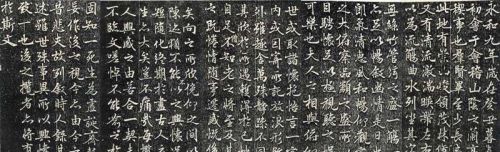 永和九年歲在癸丑暮
初會于會稽山陰之蘭
禊事也羣賢畢至少長
此地有崇山峻領茂林
又有清流激湍暎帶左
以為流觴曲水列坐其次
無絲竹管弦之盛一觴
亦足以暢敘幽情是日
朗氣清惠風和暢仰觀
之大俯察品類之盛所
目騁懷足以極視聽之
可樂也夫人之相與俯
世或取諸懷抱悟言一
內或因寄所託放浪形
外雖趣舍萬殊靜躁不同
其欣於所遇暫得於己
自足不知老之將至及其
之既惓情隨事遷感慨
矣向之所欣俛仰之
陳迹猶不能不以之興懷
隨化終期於盡古人
生亦大矣豈不痛哉每攬
興感之由若合一契未
不臨文嗟悼不能喻之
固知一死生為虛誕齊
作後之視今亦由今
昔悲夫故列敘時人錄其
述雖世殊事異所以興
致一也後之攬者亦將有
於斯文